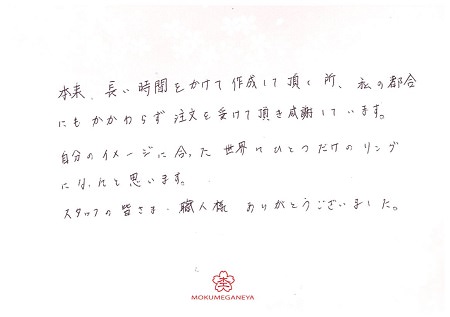 本来、長い時間をかけて作成して頂く所、私の都合
にもかかわらず注文を受けて頂き感謝しています。
自分のイメージに合った世界にひとつだけのリング
になったと思います。
スタッフの皆さま・職人様 ありがとうございました。
MOKUMEGANEYA